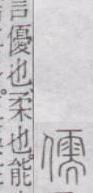 儒
言優也柔也能